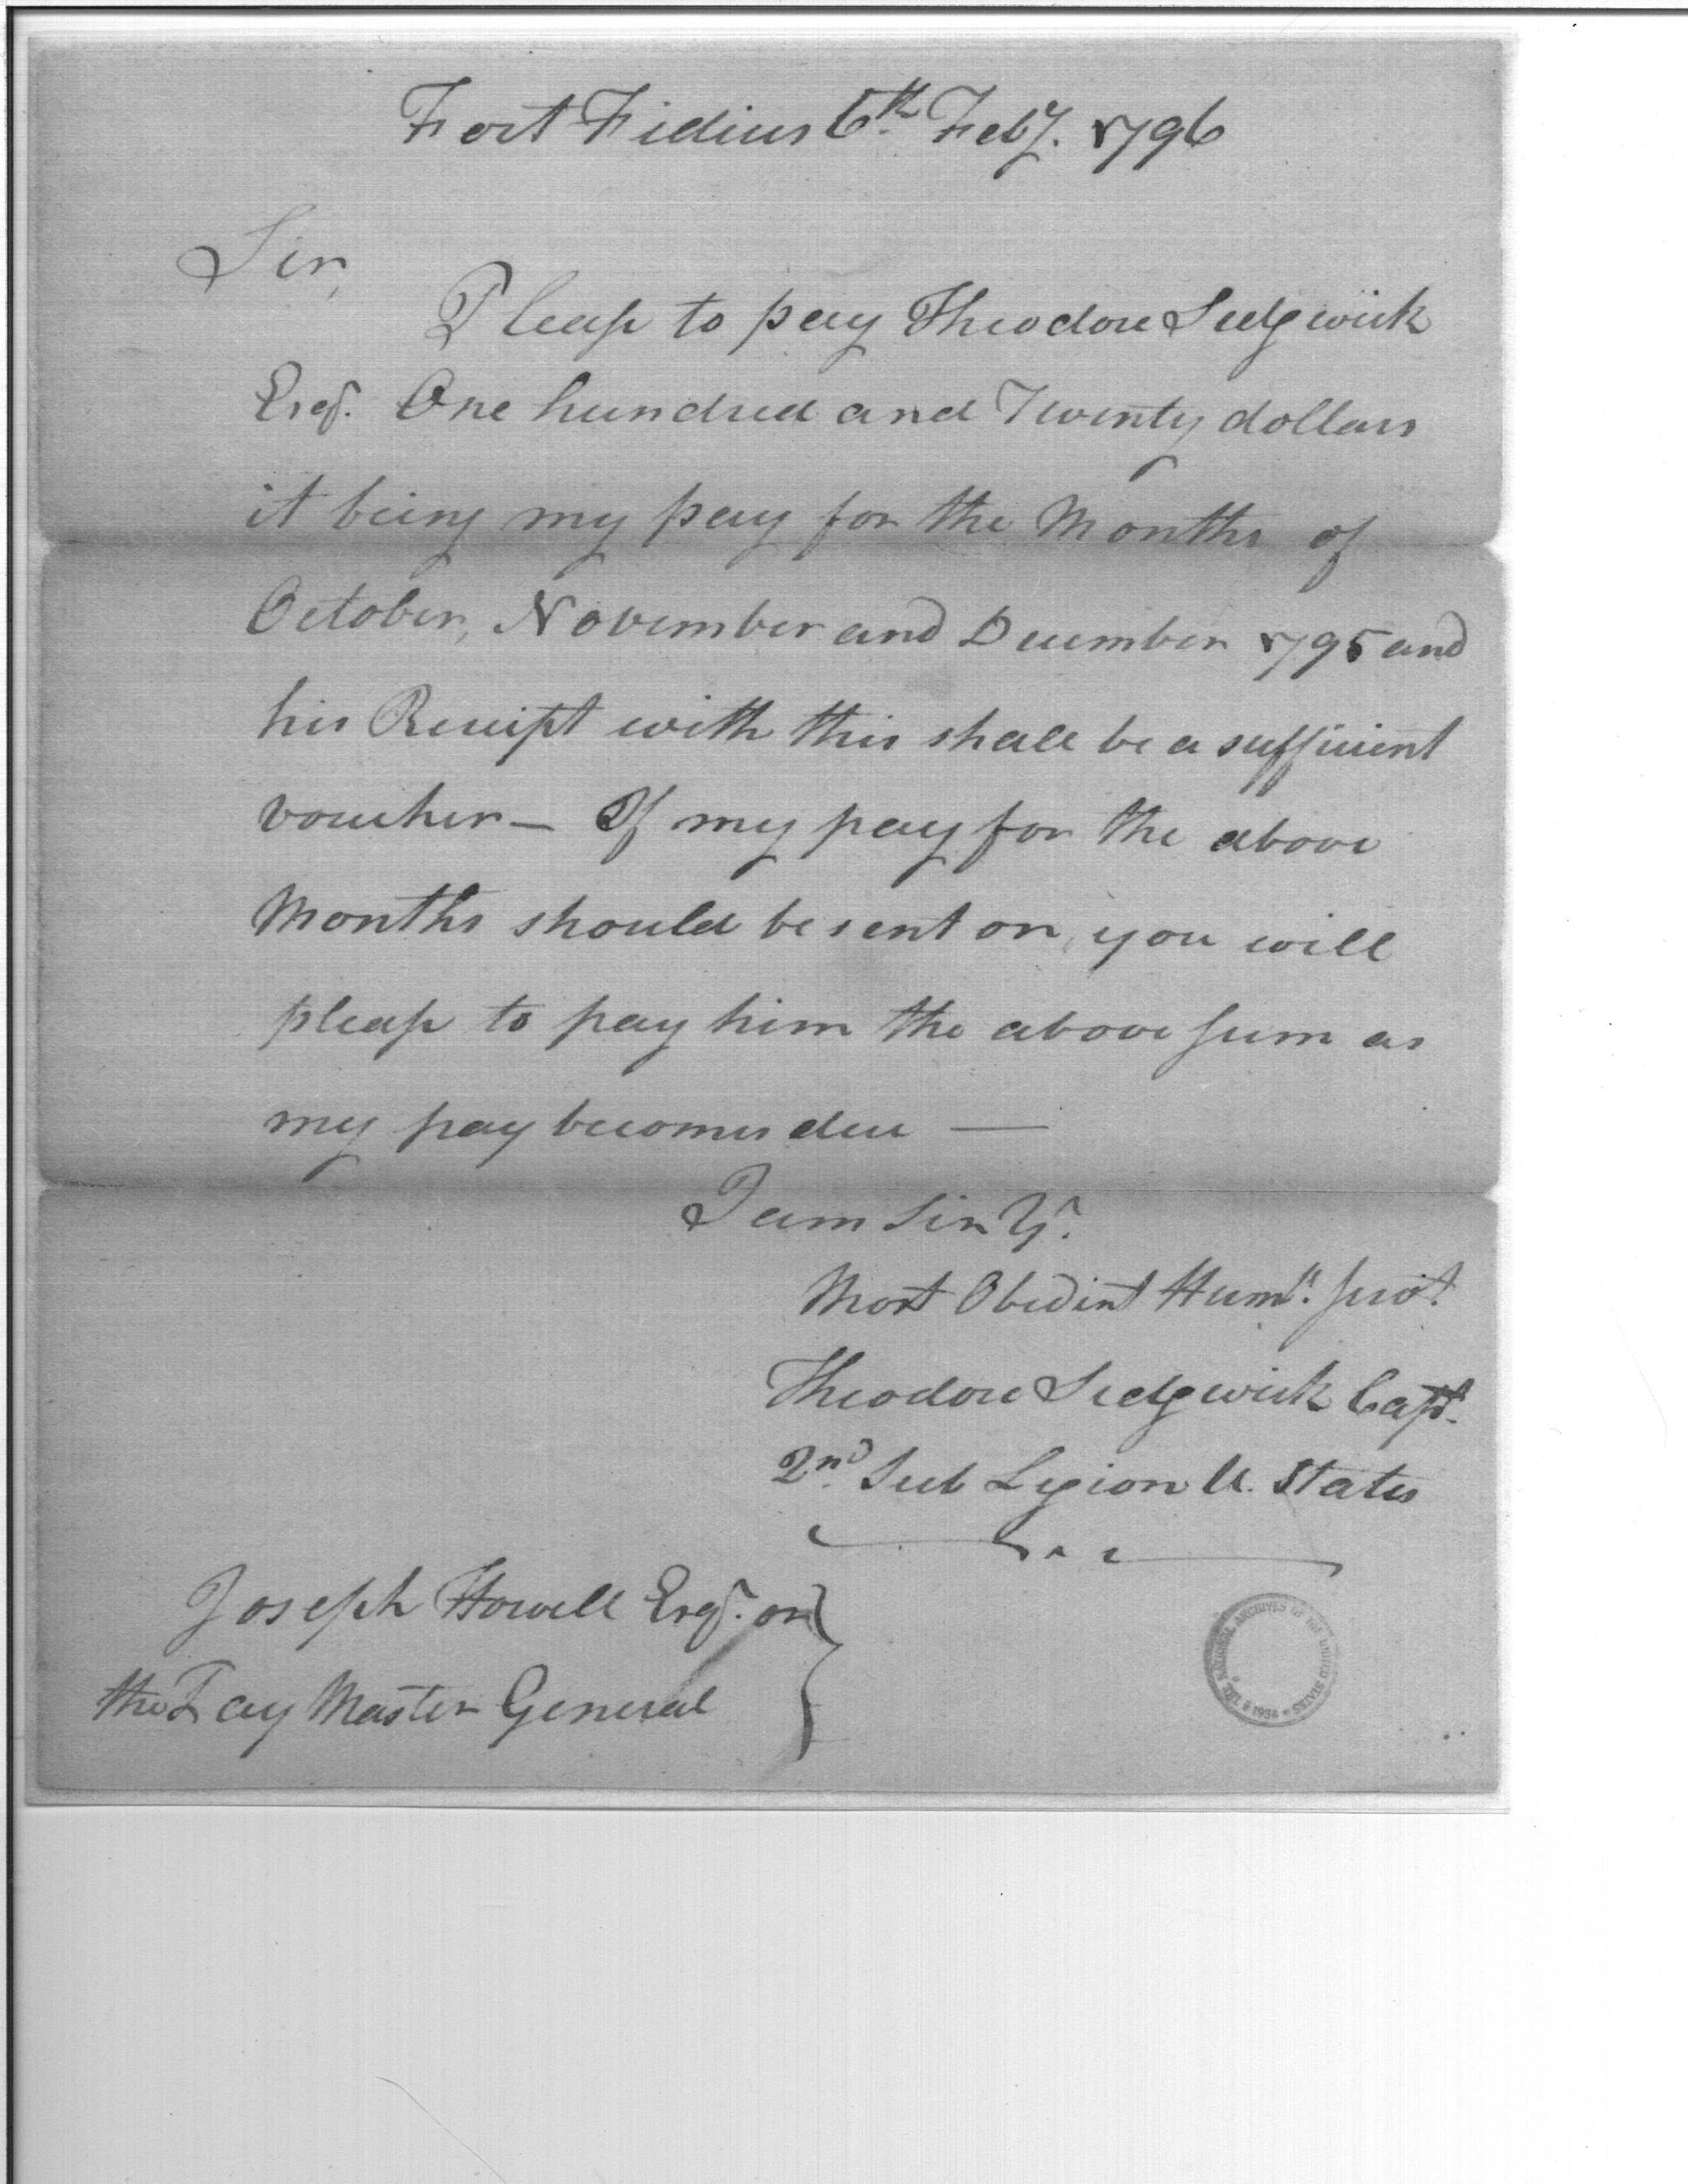 Fort Fidius 6th. Feby. 1796
Sir,
Please to pay Theodore Sedgwick
Esqr. One hundred and Twenty dollars
it being my pay for the Months of
October, November and December 1795 and
his Receipt with this shall be a sufficient
voucher — If my pay for the above
Months should be sent on, you will
please to pay him the above sum as
my pay becomes due —
I am Sir Yr.
Most Obedint Humle. servt.
Theodore Sedgwick Capt.
2nd. Sub Legion U. States
Joseph Howell Esqr. or
the Pay Master General
THE NATIONAL ARCHIVES OF THE UNITED STATES
1934